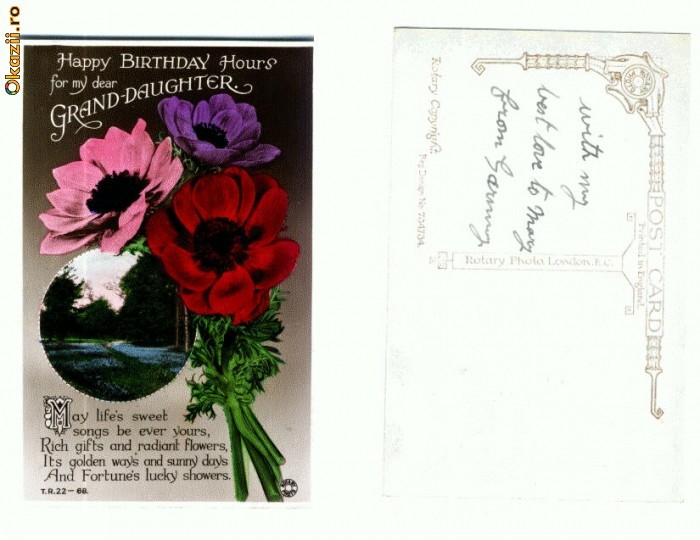 Okazii.ro
Happy BIRTHDAY Hours
for my dear
GRAND-DAUGHTER.
May life's sweet
songs be ever yours,
Rich gifts and radiant flowers,
Its golden ways and sunny days
And Fortune's lucky showers.
T.R.22-68.
with my
best love to Mary
from Granny
POST CARD
Printed in England.
Rotary Photo London. E.C.
Rotary Copyright.